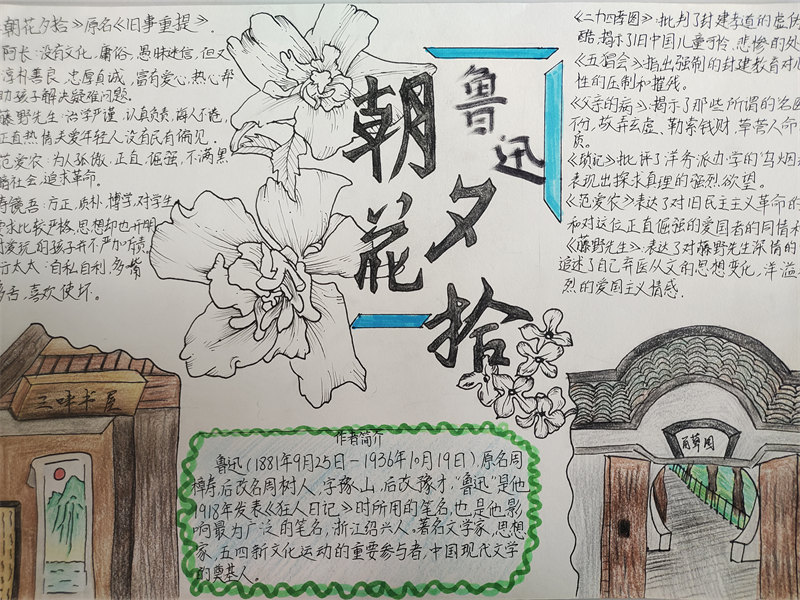 朝花夕拾》原名《旧事重提》.
阿长:没有文化,庸俗,愚昧迷信,但又
淳朴善良,忠厚真诚,富有爱心,热心帮
助孩子解决疑难问题.
藤野先生:治学严谨,认真负责,诲人不倦,
正直热情,关爱年轻人,没有民有偏见.
范爱农:为人孤傲,正直,倔强,不满黑
暗社会,追求革命.
寿镜吾:方正,质朴,博学,对学生
要求比较严格,思想却也开明
对爱玩的孩子并不严加
衍太太:自私自利,多嘴
多舌,喜欢使坏.
朝花夕拾
鲁迅
《二十四孝图》:批判了封建孝道的虚伪
酷,揭示了旧中国儿童可怜,悲惨的处
《五猖会》:指出强制的封建教育对儿
性的压制和摧残.
《父亲的病》:揭示了那些所谓的名医
不分,故弄玄虚,勒索钱财,草菅人命
质.
《琐记》批评了洋务派办学的"乌烟
表现出探求真理的强烈欲望.
《范爱农》表达了对旧民主主义革命的
和对这位正直倔强的爱国者的同情和
《藤野先生》:表达了对藤野先生深情的
追述了自己弃医从文的思想变化,洋溢
烈的爱国主义情感.
三味书屋
百草园
作者简介
鲁迅(1881年9月25日-1936年10月19日),原名周
樟寿,后改名周树人,字豫山,后改豫才,"鲁迅"是他
1918年发表《狂人日记》时所用的笔名,也是他影
响最为广泛的笔名,浙江绍兴人。著名文学家,思想
家,五四新文化运动的重要参与者,中国现代文学
的奠基人。